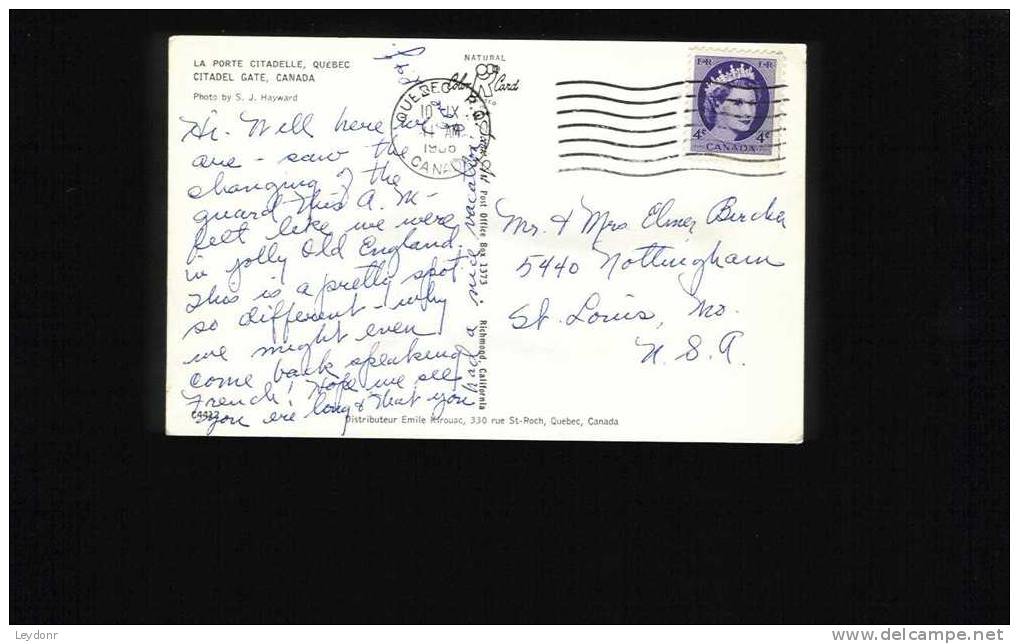 LA PORTE CITADELLE, QUÉBEC
CITADEL GATE, CANADA
Photo by S. J. Hayward
Hi. Well here we
are - saw the
changing of the
guard this A.M-
felt like we were
in jolly Old England.
This is a pretty spot
so different - why
we might even
come back speaking
French! Hope we see
you ere long & that you
had a nice vacation.
C4422
NATURAL
Color Card
QUEBEC P.Q.
10 IX
11 AM
CANADA
Post Office Box 1373 Richmond, California
Distributeur Emile Kirouac, 330 rue St-Roch, Quebec, Canada
E·R E·R
4¢ 4¢
CANADA
Mr. & Mrs Elmer Bircher
5440 Nottingham
St. Louis, Mo.
U.S.A.
Leydonr
delcampe.net